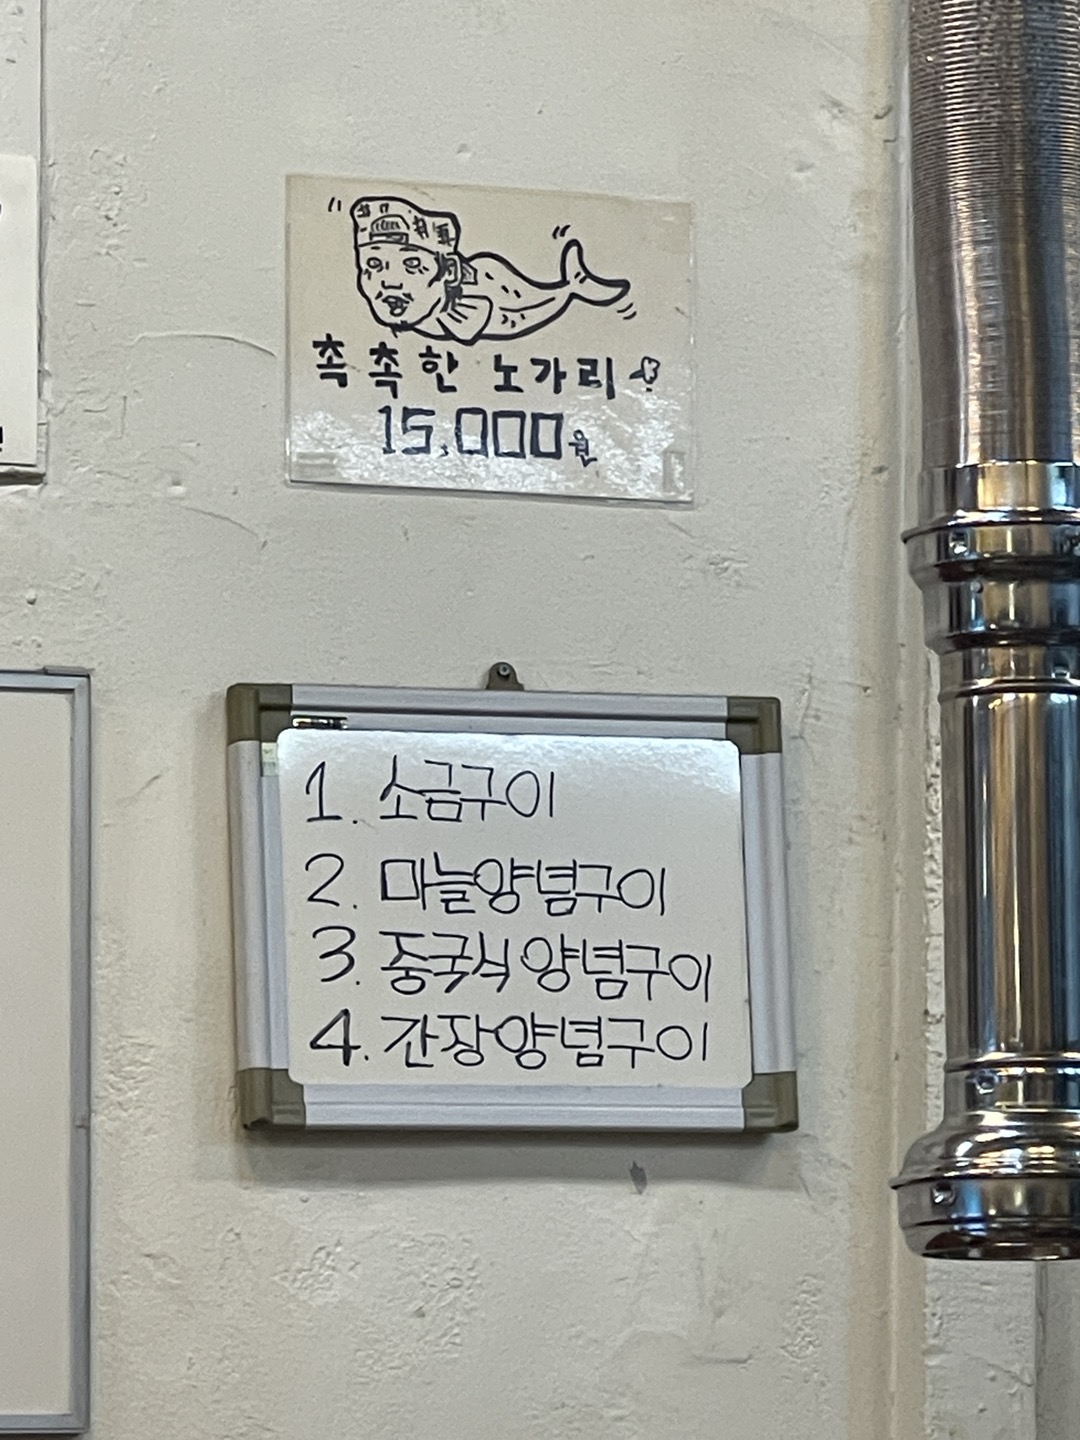 촉촉한 노가리
15,000원
1. 소금구이
2. 마늘양념구이
3. 중국식양념구이
4. 간장양념구이